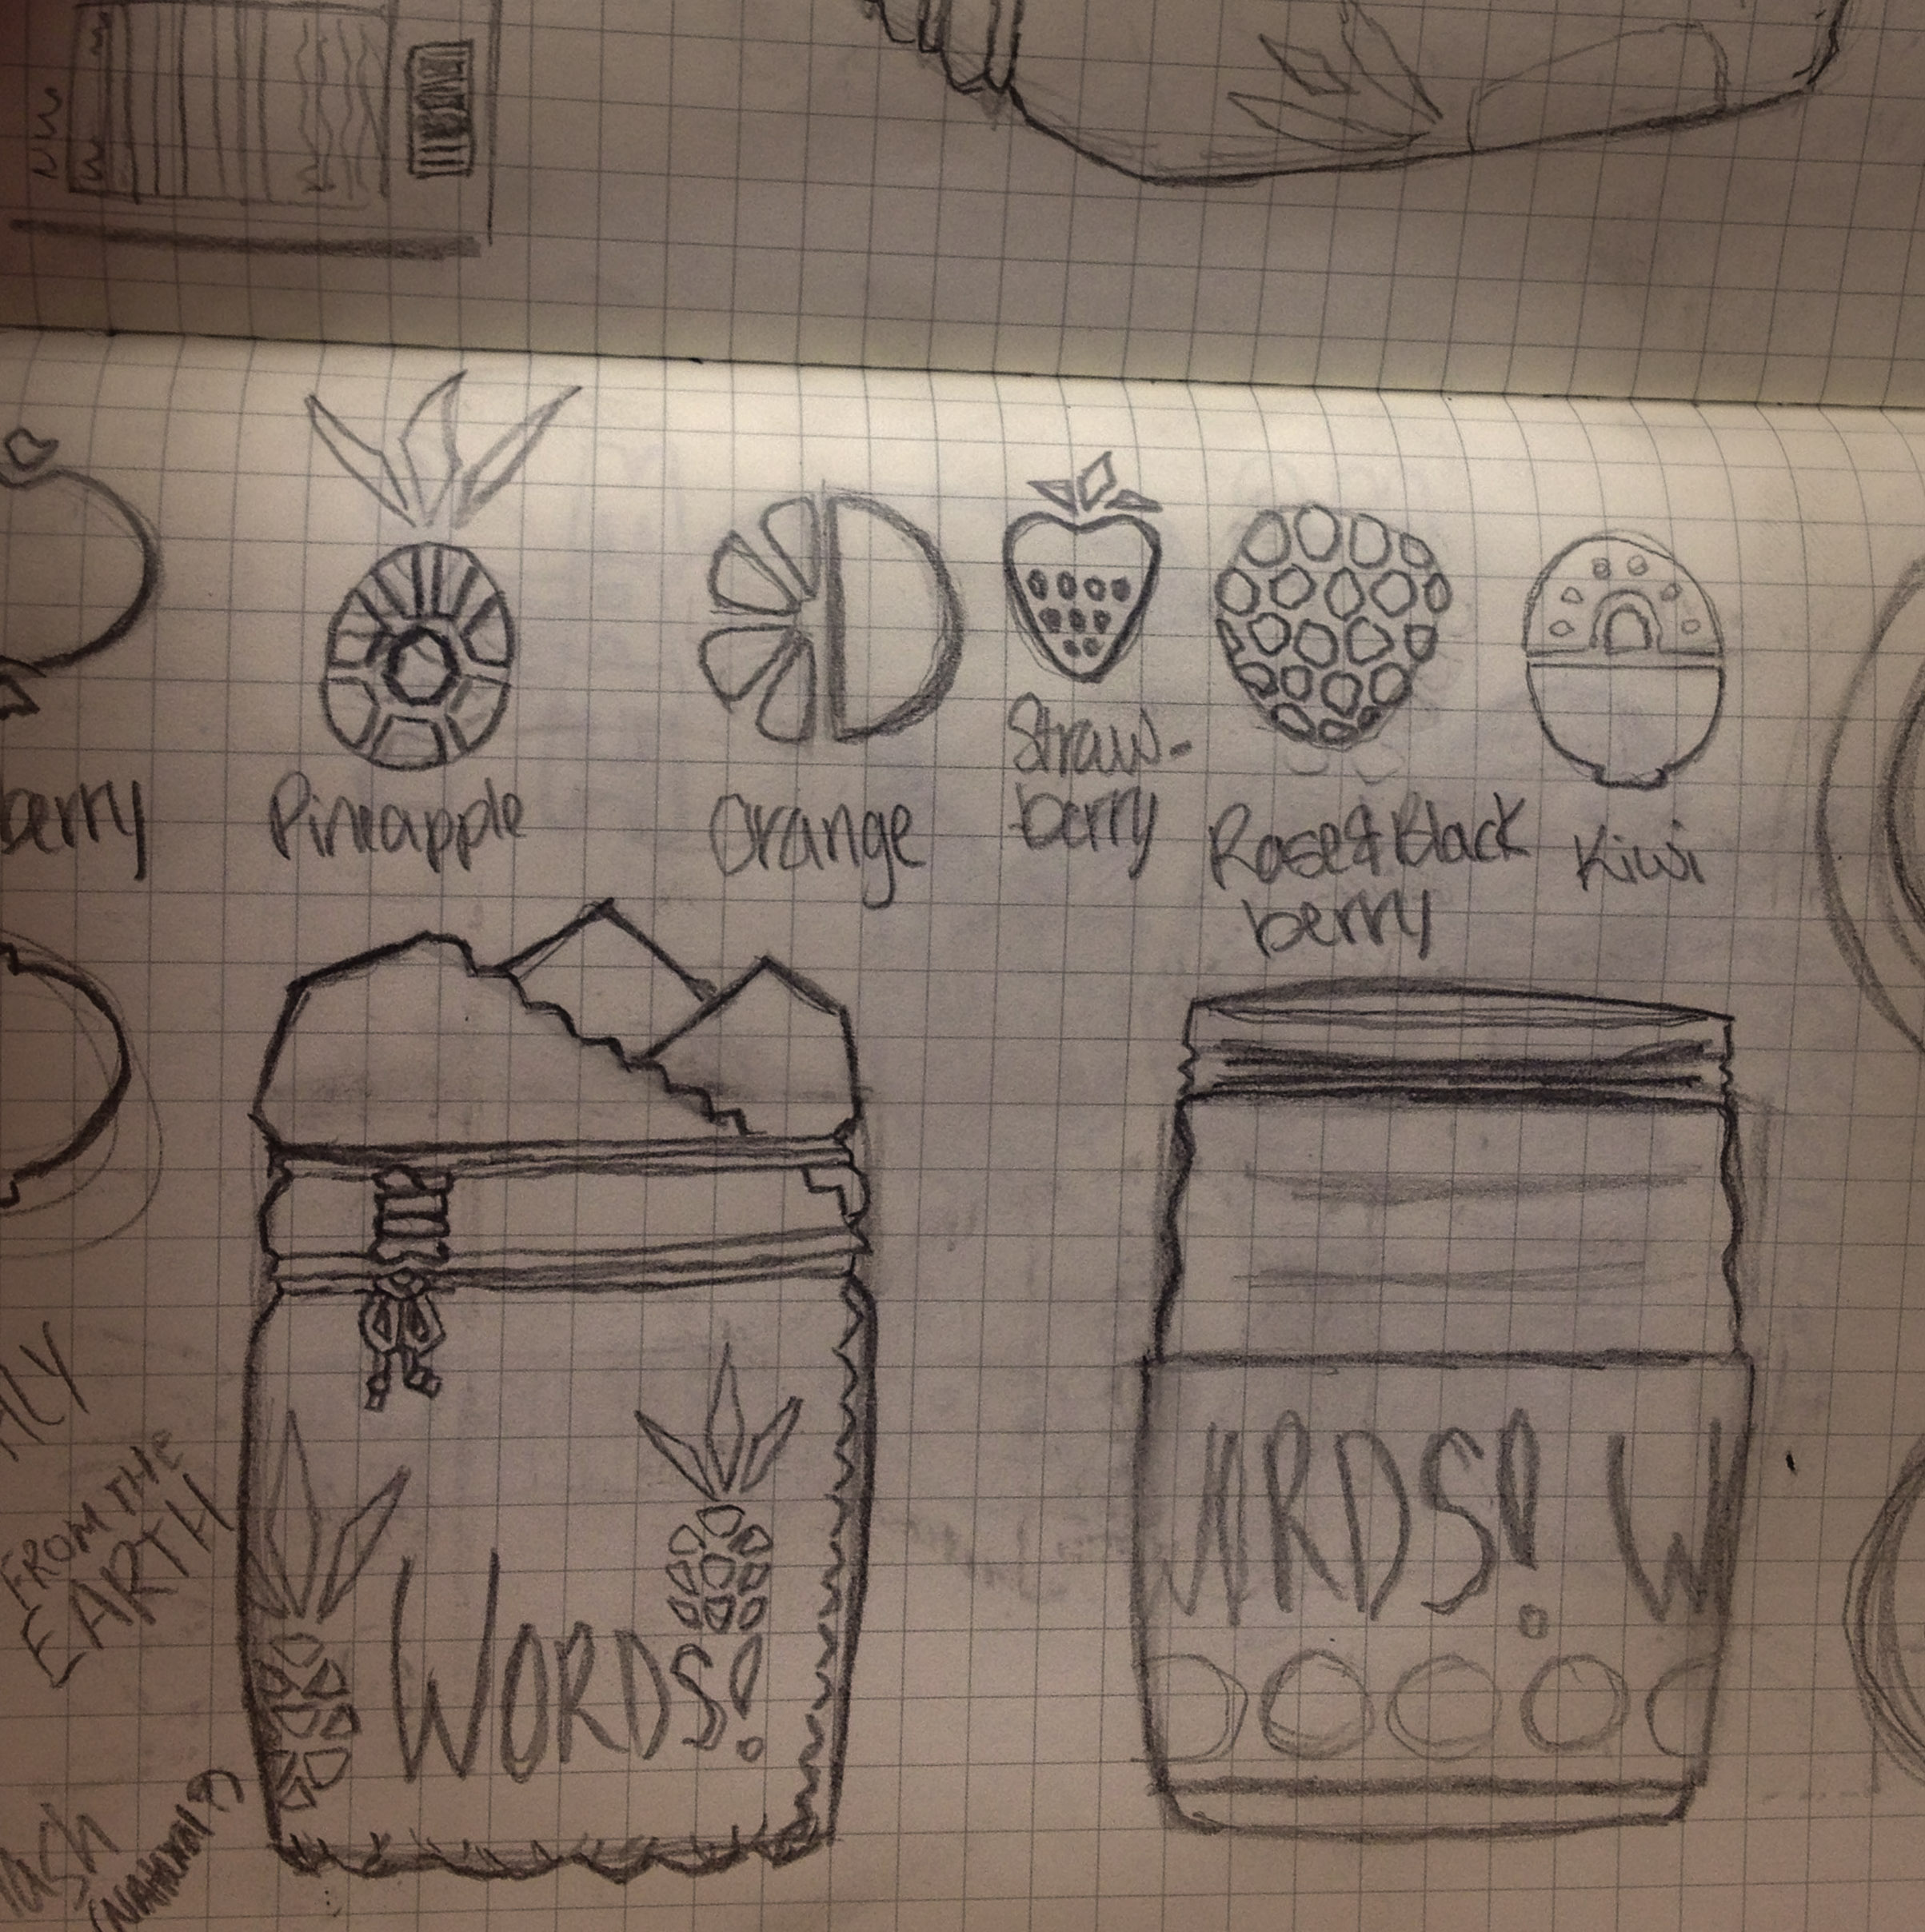 berry
Pineapple
Orange
Straw-
berry
Rose&Black
berry
Kiwi
FROM THE
EARTH
WORDS!
WORDS! W